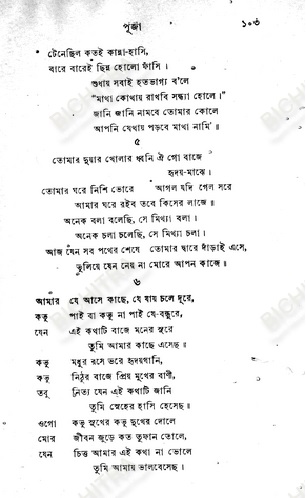 পূজা ১০৩
টেনেছিল কতই কান্না-হাসি,
বারে বারেই ছিন্ন হোলো ফাঁসি ।
শুধায় সবাই হতভাগ্য ব'লে
"মাথা কোথায় রাখবি সন্ধ্যা হোলে ।"
জানি জানি নামবে তোমার কোলে
আপনি যেথায় পড়বে মাথা নামি' ॥
৫
তোমার দুয়ার খোলার ধ্বনি ঐ গো বাজে
হৃদয়-মাঝে ।
তোমার ঘরে নিশি ভোরে আগল যদি গেল সরে
আমার ঘরে রইব তবে কিসের লাজে ॥
অনেক বলা বলেছি, সে মিথ্যা বলা ।
অনেক চলা চলেছি, সে মিথ্যা চলা ।
আজ যেন সব পথের শেষে তোমার দ্বারে দাঁড়াই এসে,
ভুলিয়ে যেন নেয় না মোরে আপন কাজে ॥
৬
আমার যে আসে কাছে, যে যায় চলে দূরে,
কভু পাই বা কভু না পাই যে-বন্ধুরে,
যেন এই কথাটি বাজে মনের সুরে
তুমি আমার কাছে এসেছ ॥
কভু মধুর রসে ভরে হৃদয়খানি,
কভু নিঠুর বাজে প্রিয় মুখের বাণী,
তবু নিত্য যেন এই কথাটি জানি
তুমি স্নেহের হাসি হেসেছ ॥
ওগো কভু সুখের কভু দুখের দোলে
মোর জীবন জুড়ে কত তুফান তোলে,
যেন চিত্ত আমার এই কথা না ভোলে
তুমি আমায় ভালবেসেছ ।